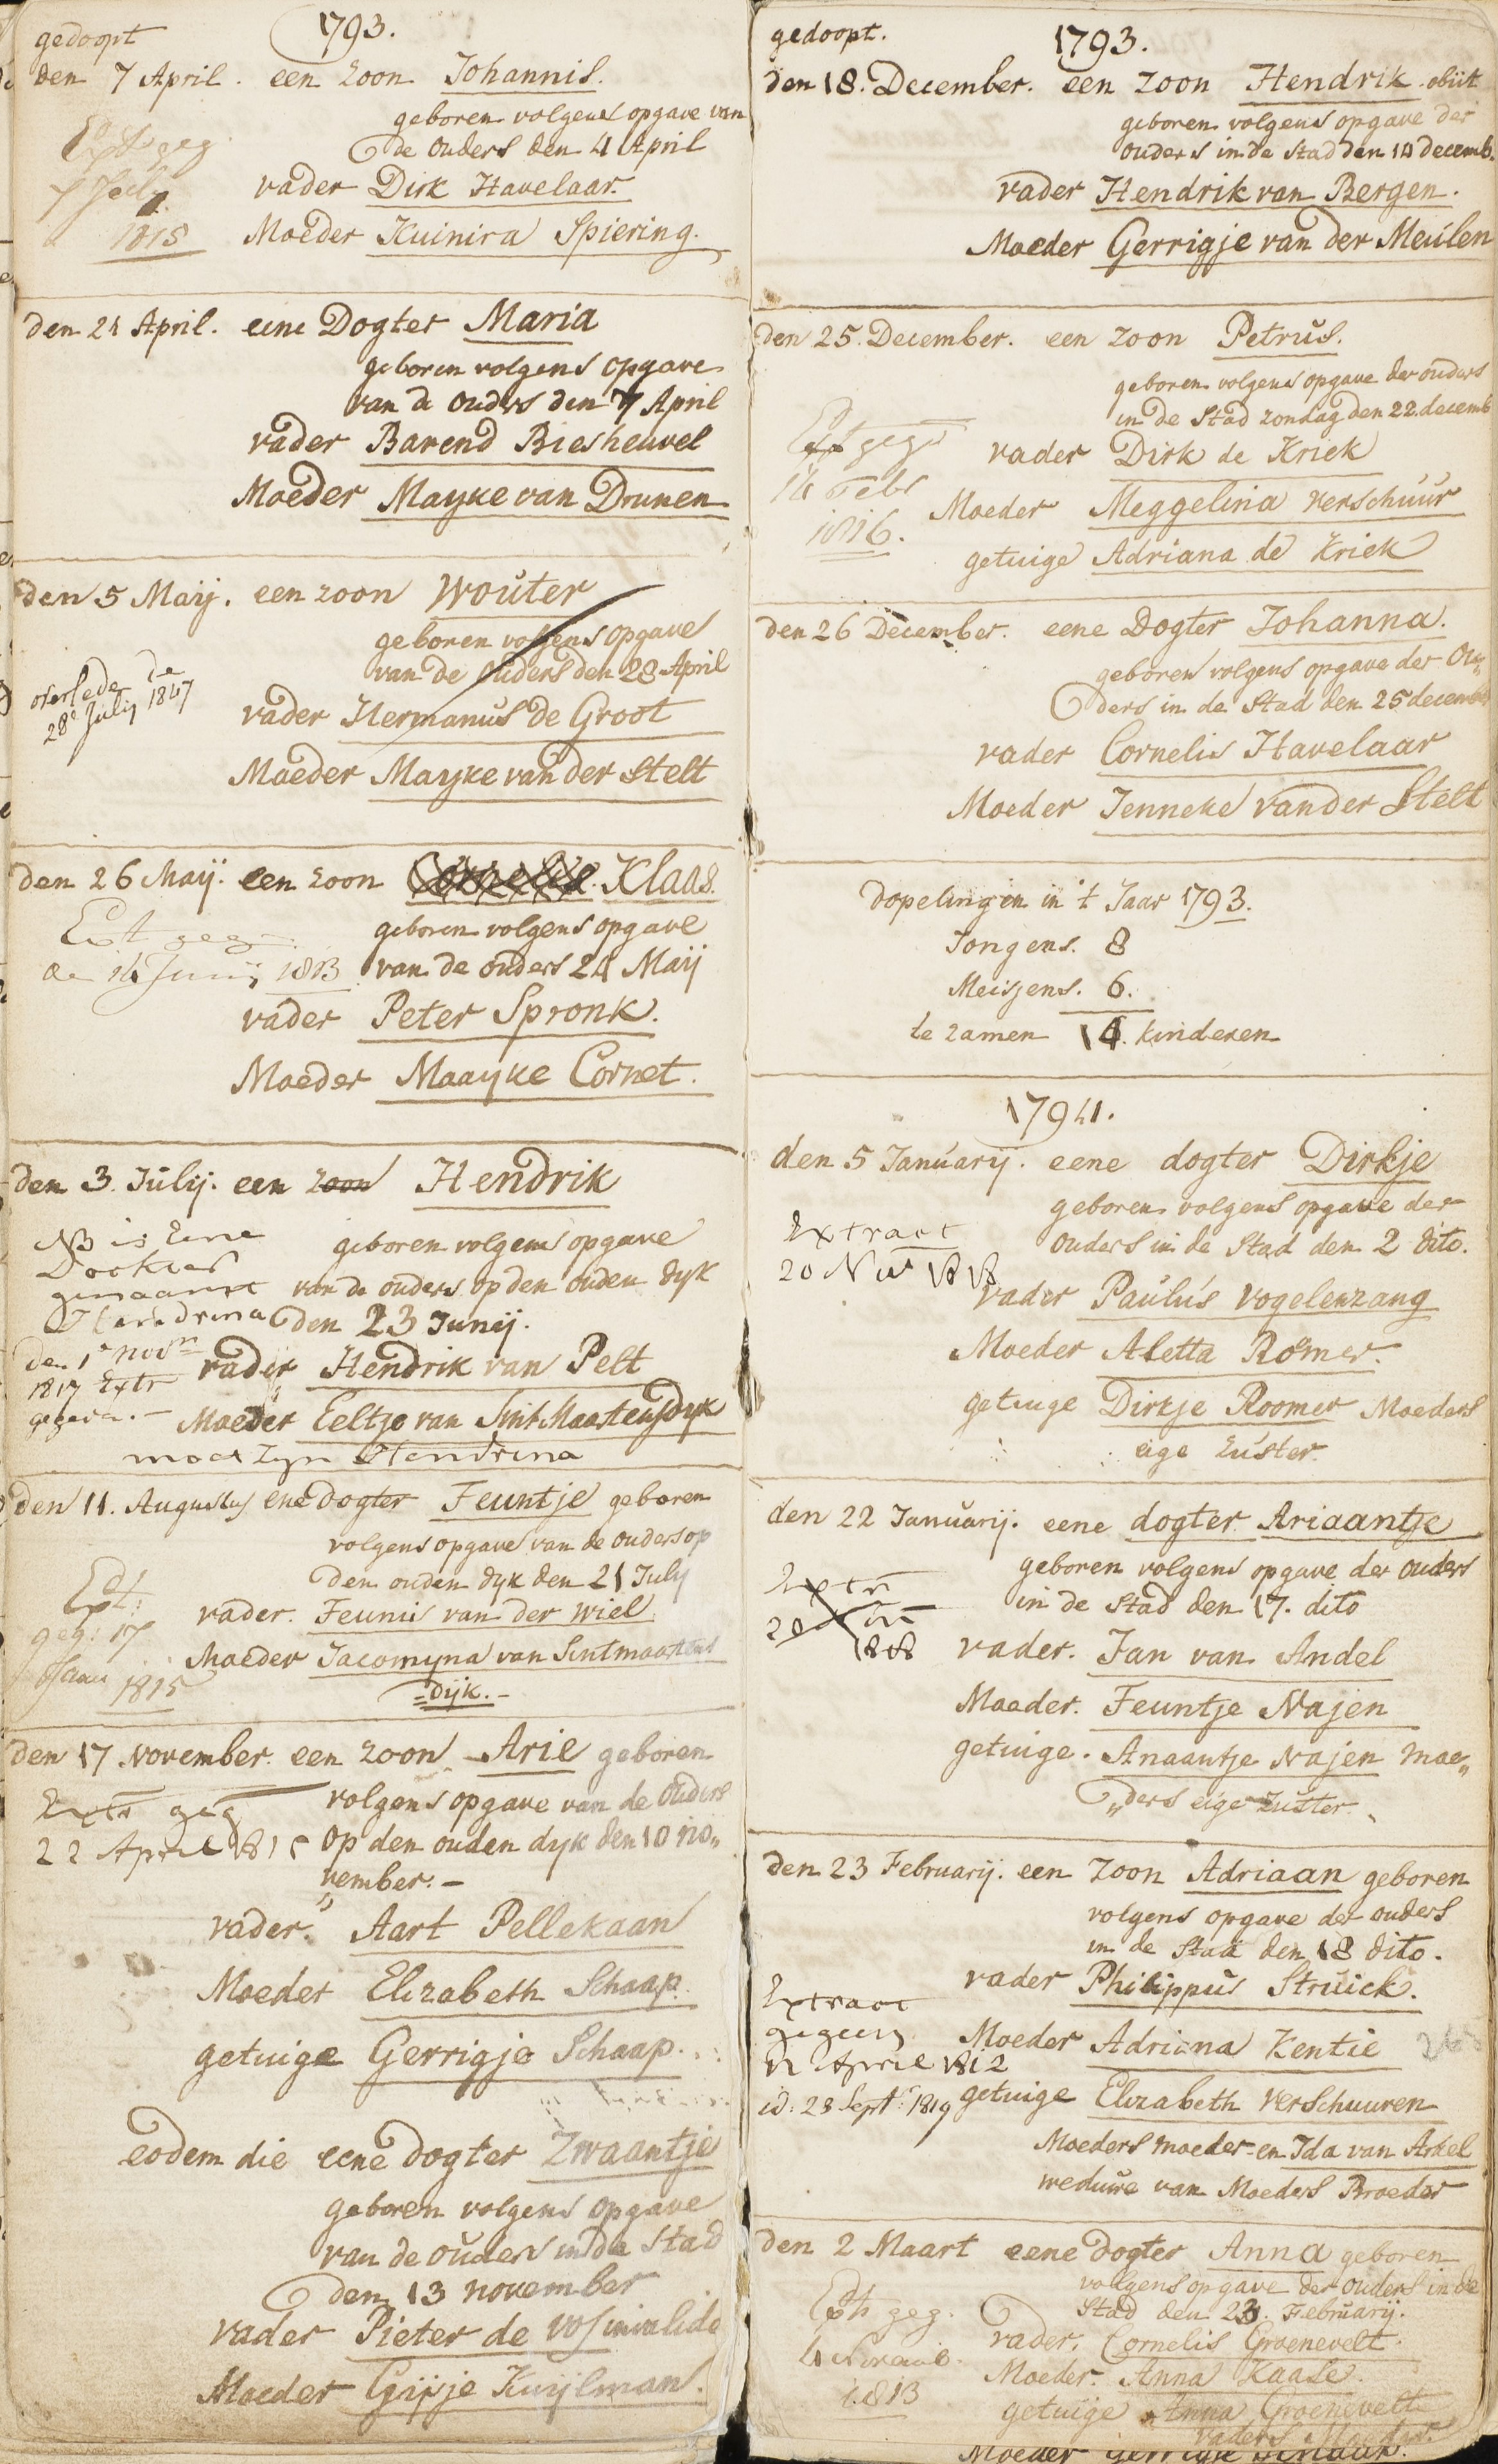 gedoopt 1793.
den 7 April. een zoon Johannis.
geboren volgens opgave van
de Ouders den 4 April
Ext geg
7 July
1815
vader Dirk Havelaar.
Moeder Kuinira Spiering.
den 21 April. eene Dogter Maria
geboren volgens opgave
van de ouders den 7 April
vader Barend Biesheuvel
Moeder Mayke van Drunen
den 5 Maij. een zoon Wouter
geboren volgens opgave
van de Ouders den 28 April
overlede de
28e July 1847
vader Hermanus de Groot
Moeder Mayke van der Stelt
den 26 Maij. een zoon Cornelis. Klaas.
geboren volgens opgave
van de ouders 24 Maij
Ext geg
de 14 Junij 1813
vader Peter Spronk.
Moeder Maayke Cornet.
den 3. Julij. een zoon Hendrik
geboren volgens opgave
van de ouders op den ouden dyk
den 23 Junij.
NB is Eene
Dochter
genaamt
Hendrina
den 1e novm
1817 Extr
gegeven.-
vader Hendrik van Pelt
Moeder Eeltje van Sint Maartensdyk
moet zyn Hendrina
den 11. Augustus ene dogter Teuntje geboren
volgens opgave van de ouders op
den ouden dyk den 21 July
Ext:
geg: 17
Jan 1815
vader. Teunis van der Wiel
Moeder Jacomyna van Sintmaartens
=dijk.-
den 17 November. een zoon Arie geboren
volgens opgave van de Ouders
Op den ouden dyk den 10 no„
„vember.-
Extr geg
22 April 1815
vader. Aart Pellekaan
Moeder Elizabeth Schaap.
getuige Gerrigje Schaap.
eodem die eene dogter Zwaantje
geboren volgens opgave
van de ouders in de Stad
den 13 november
vader Pieter de Vos invalide
Moeder Gijsje Kuijlman.
gedoopt. 1793.
den 18. December. een zoon Hendrik. obiit
geboren volgens opgave der
ouders in de stad den 14 decemb.
vader Hendrik van Bergen.
Moeder Gerrigje van der Meulen
den 25. December. een zoon Petrus.
geboren volgens opgave der ouders
in de Stad zondag den 22. decemb
Ext geg
14 Febr
1816.
vader Dirk de Kriek
Moeder Meggelina Verschuur
getuige Adriana de Kriek
den 26 December. eene Dogter Johanna.
geboren volgens opgave der Ou„
ders in de Stad den 25 decemb
vader Cornelis Havelaar
Moeder Jenneke van der Stelt
dopelingen in 't Jaar 1793.
Jongens. 8
Meisjens. 6.
te zamen 14. kinderen
1794.
den 5 Januarij. eene dogter Dirkje
geboren volgens opgave der
ouders in de Stad den 2 dito.
Extract
20 Nov 1818
vader Paulus Vogelenzang
Moeder Aletta Romer.
getuige Dirkje Roomer Moeders
eige Zuster.
den 22 Januarij. eene dogter Ariaantje
geboren volgens opgave der ouders
in de Stad den 17. dito
Extr
1808
vader. Jan van Andel
Moeder. Teuntje Najen
getuige. Anaantje Najen Moe„
„ders eige Zuster.
den 23 Februarij. een Zoon Adriaan geboren
volgens opgave der ouders
in de Stad den 18 dito.
vader Philippus Struick.
Extract
gegeven
12 April 1812
id: 23 Sept. 1819
Moeder Adriana Kentie
getuige Elizabeth Verschuuren
Moeders moeder en Ida van Arkel
weduwe van Moeders Broeder
den 2 Maart eene dogter Anna geboren
volgens opgave der ouders in de
Stad den 23. Februarij.
Ext geg.
1813
vader. Cornelis Groenevelt.
Moeder. Anna Kaase.
getuige Anna Groenevelt
vaders
Moeder Gerrigje